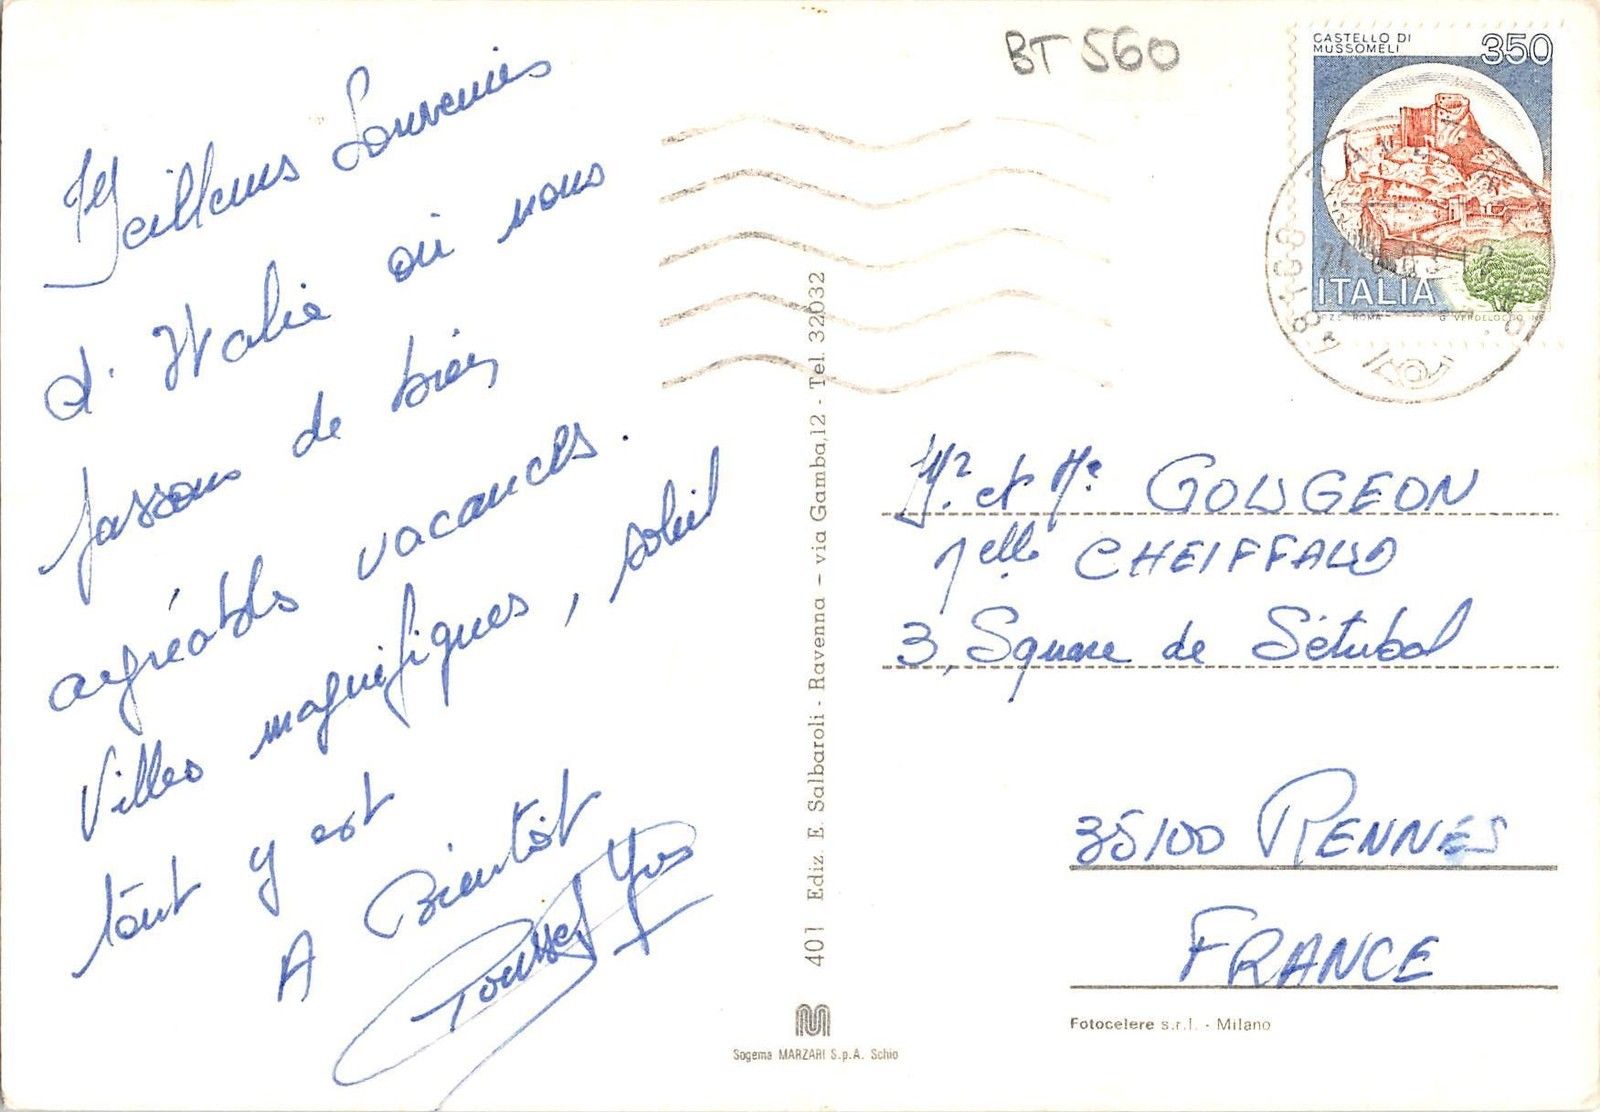 BT 560
CASTELLO DI
MUSSOMELI
350
ITALIA
ROMA
Meilleurs Souvenirs
d'Italie où nous
passons de bien
agréables vacances.
Villes magnifiques, soleil
tout y est
A Bientôt
Yves
401 Ediz. E. Salbaroli - Ravenna - via Gamba,12 - Tel. 32032
Sogema MARZARI S.p.A. Schio
Mr et Me GOUGEON
Melle CHEIFFAUD
3, Square de Sétubal
35100 RENNES
FRANCE
Fotocelere s.r.l. - Milano